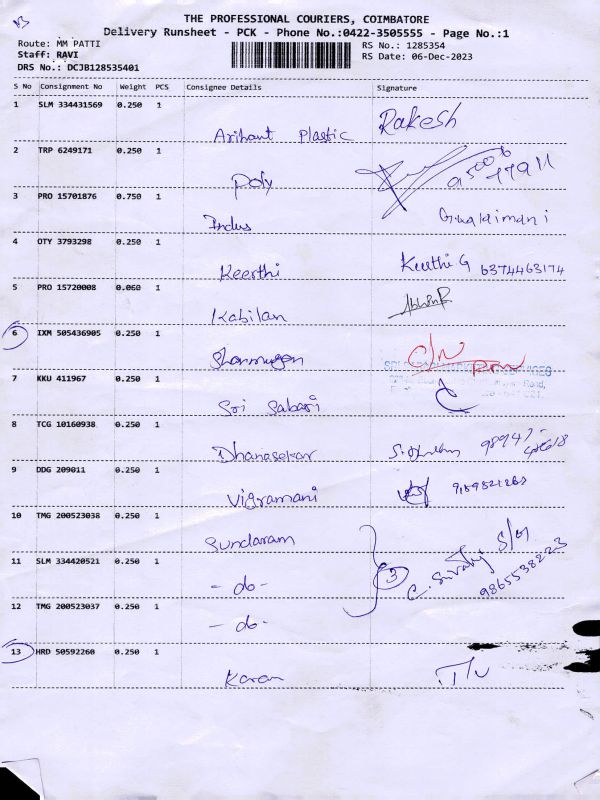 THE PROFESSIONAL COURIERS, COIMBATORE
Delivery Runsheet - PCK - Phone No.:0422-3505555 - Page No.:1
Route: MM PATTI RS No.: 1285354
Staff: RAVI RS Date: 06-Dec-2023
DRS No.: DCJB128535401
S No Consignment No Weight PCS Consignee Details Signature
1 SLM 334431569 0.250 1
Arihant Plastic Rakesh
2 TRP 6249171 0.250 1
Poly
3 PRO 15701876 0.750 1
Indus
4 OTY 3793298 0.250 1
Keerthi Keerthi G 6374463174
5 PRO 15720008 0.060 1
Kabilan
6 IXM 505436905 0.250 1
Shanmugan
7 KKU 411967 0.250 1
Sri Sabari
8 TCG 10160938 0.250 1
Dhanasekar
9 DDG 209011 0.250 1
Vigramani
10 TMG 200523038 0.250 1
Sundaram
11 SLM 334420521 0.250 1
- do - 3
12 TMG 200523037 0.250 1
- do - 9865538223
13 HRD 50592260 0.250 1
Karan